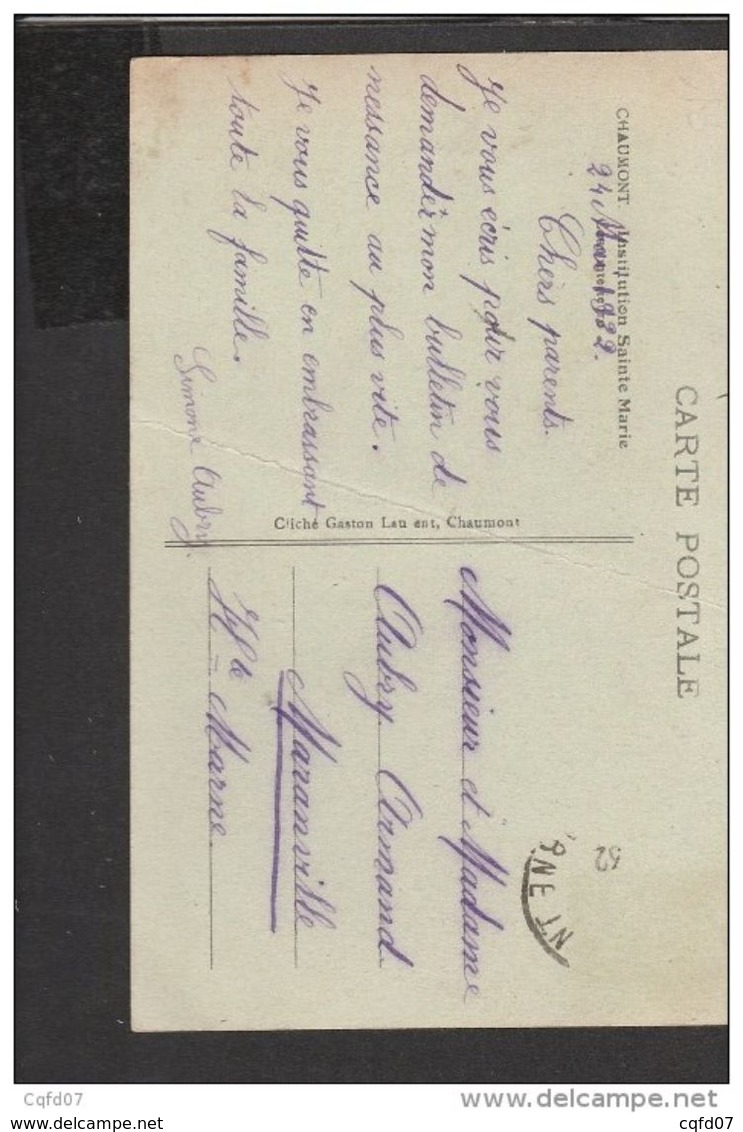 CARTE POSTALE
CHAUMONT Institution Sainte Marie
24 1932.
Chers parents.
Je vous écris pour vous
demander mon bulletin de
nessance au plus vite.
Je vous quitte en embrassant
toute la famille.
Simone Aubry.
Cliché Gaston Lau ent, Chaumont
Monsieur et Madame
Aubry Armand.
Maranville
Hte Marne.
52
Cqfd07
delcampe.net
Cqfd07
cqfd07